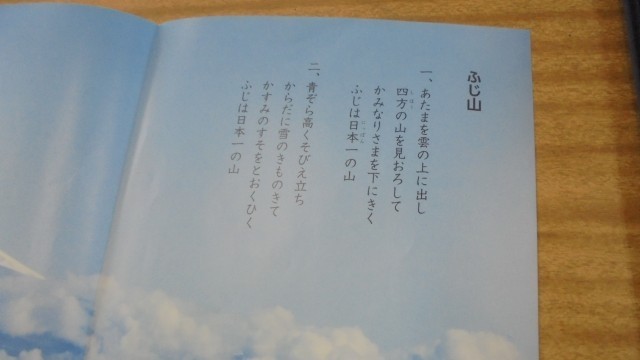 ふじ山
一、あたまを雲の上に出し
四方の山を見おろして
かみなりさまを下にきく
ふじは日本一の山
二、青ぞら高くそびえ立ち
からだに雪のきものきて
かすみのすそをとおくひく
ふじは日本一の山